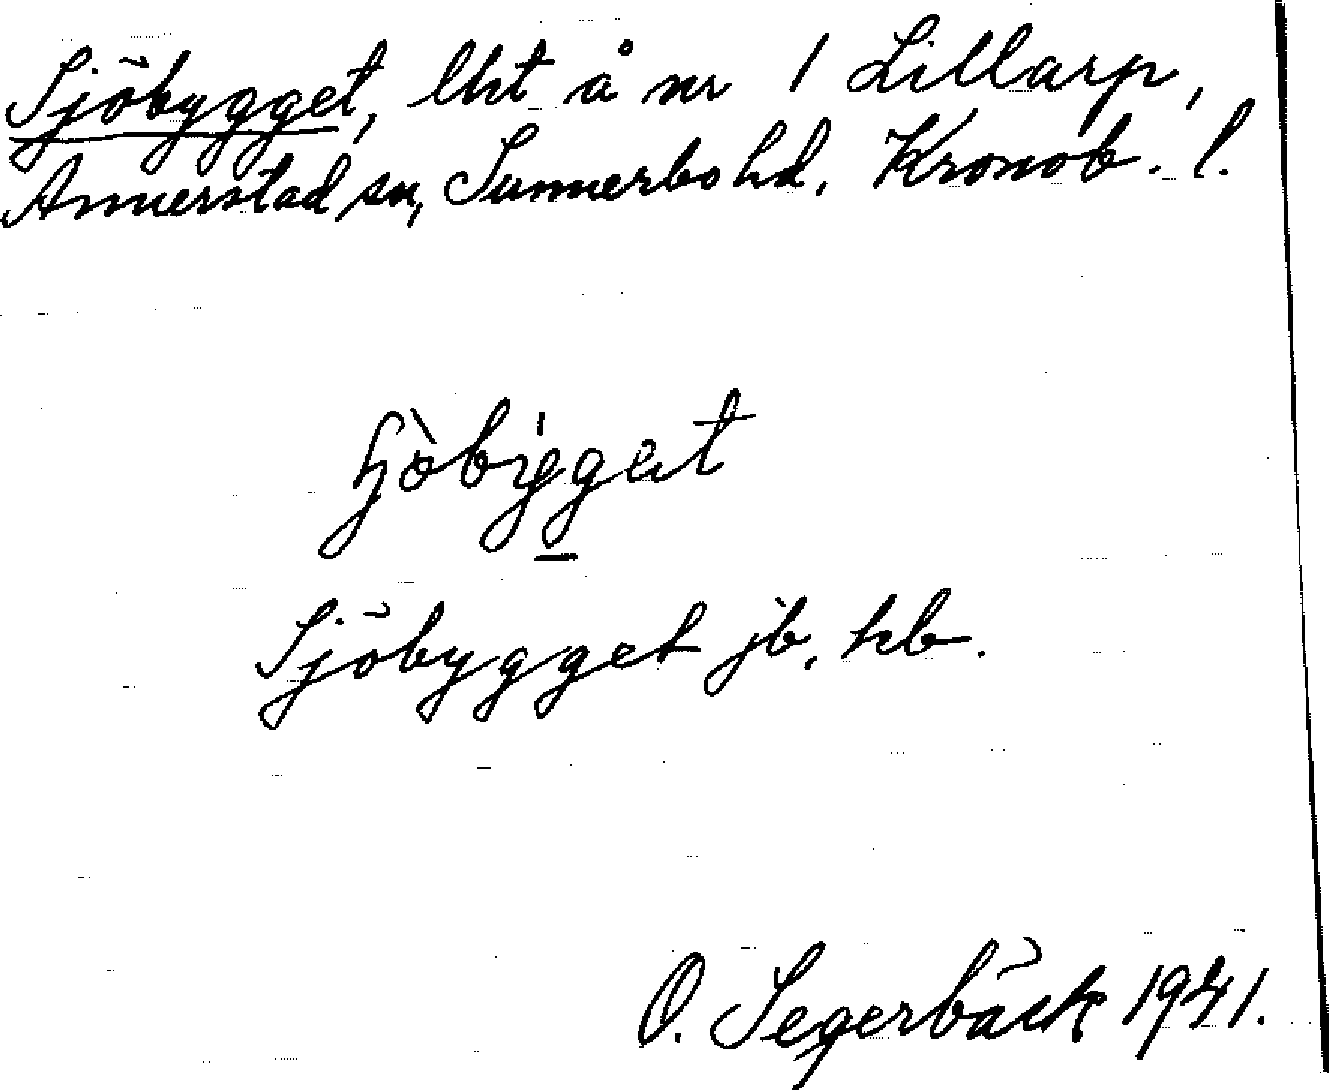 Sjöbygget, lht å nr 1 Lillarp,
Annerstad sn, Sunnerbo hd. Kronob. l.
Sjöbygget jb, kb.
O. Segerbäck 1941.